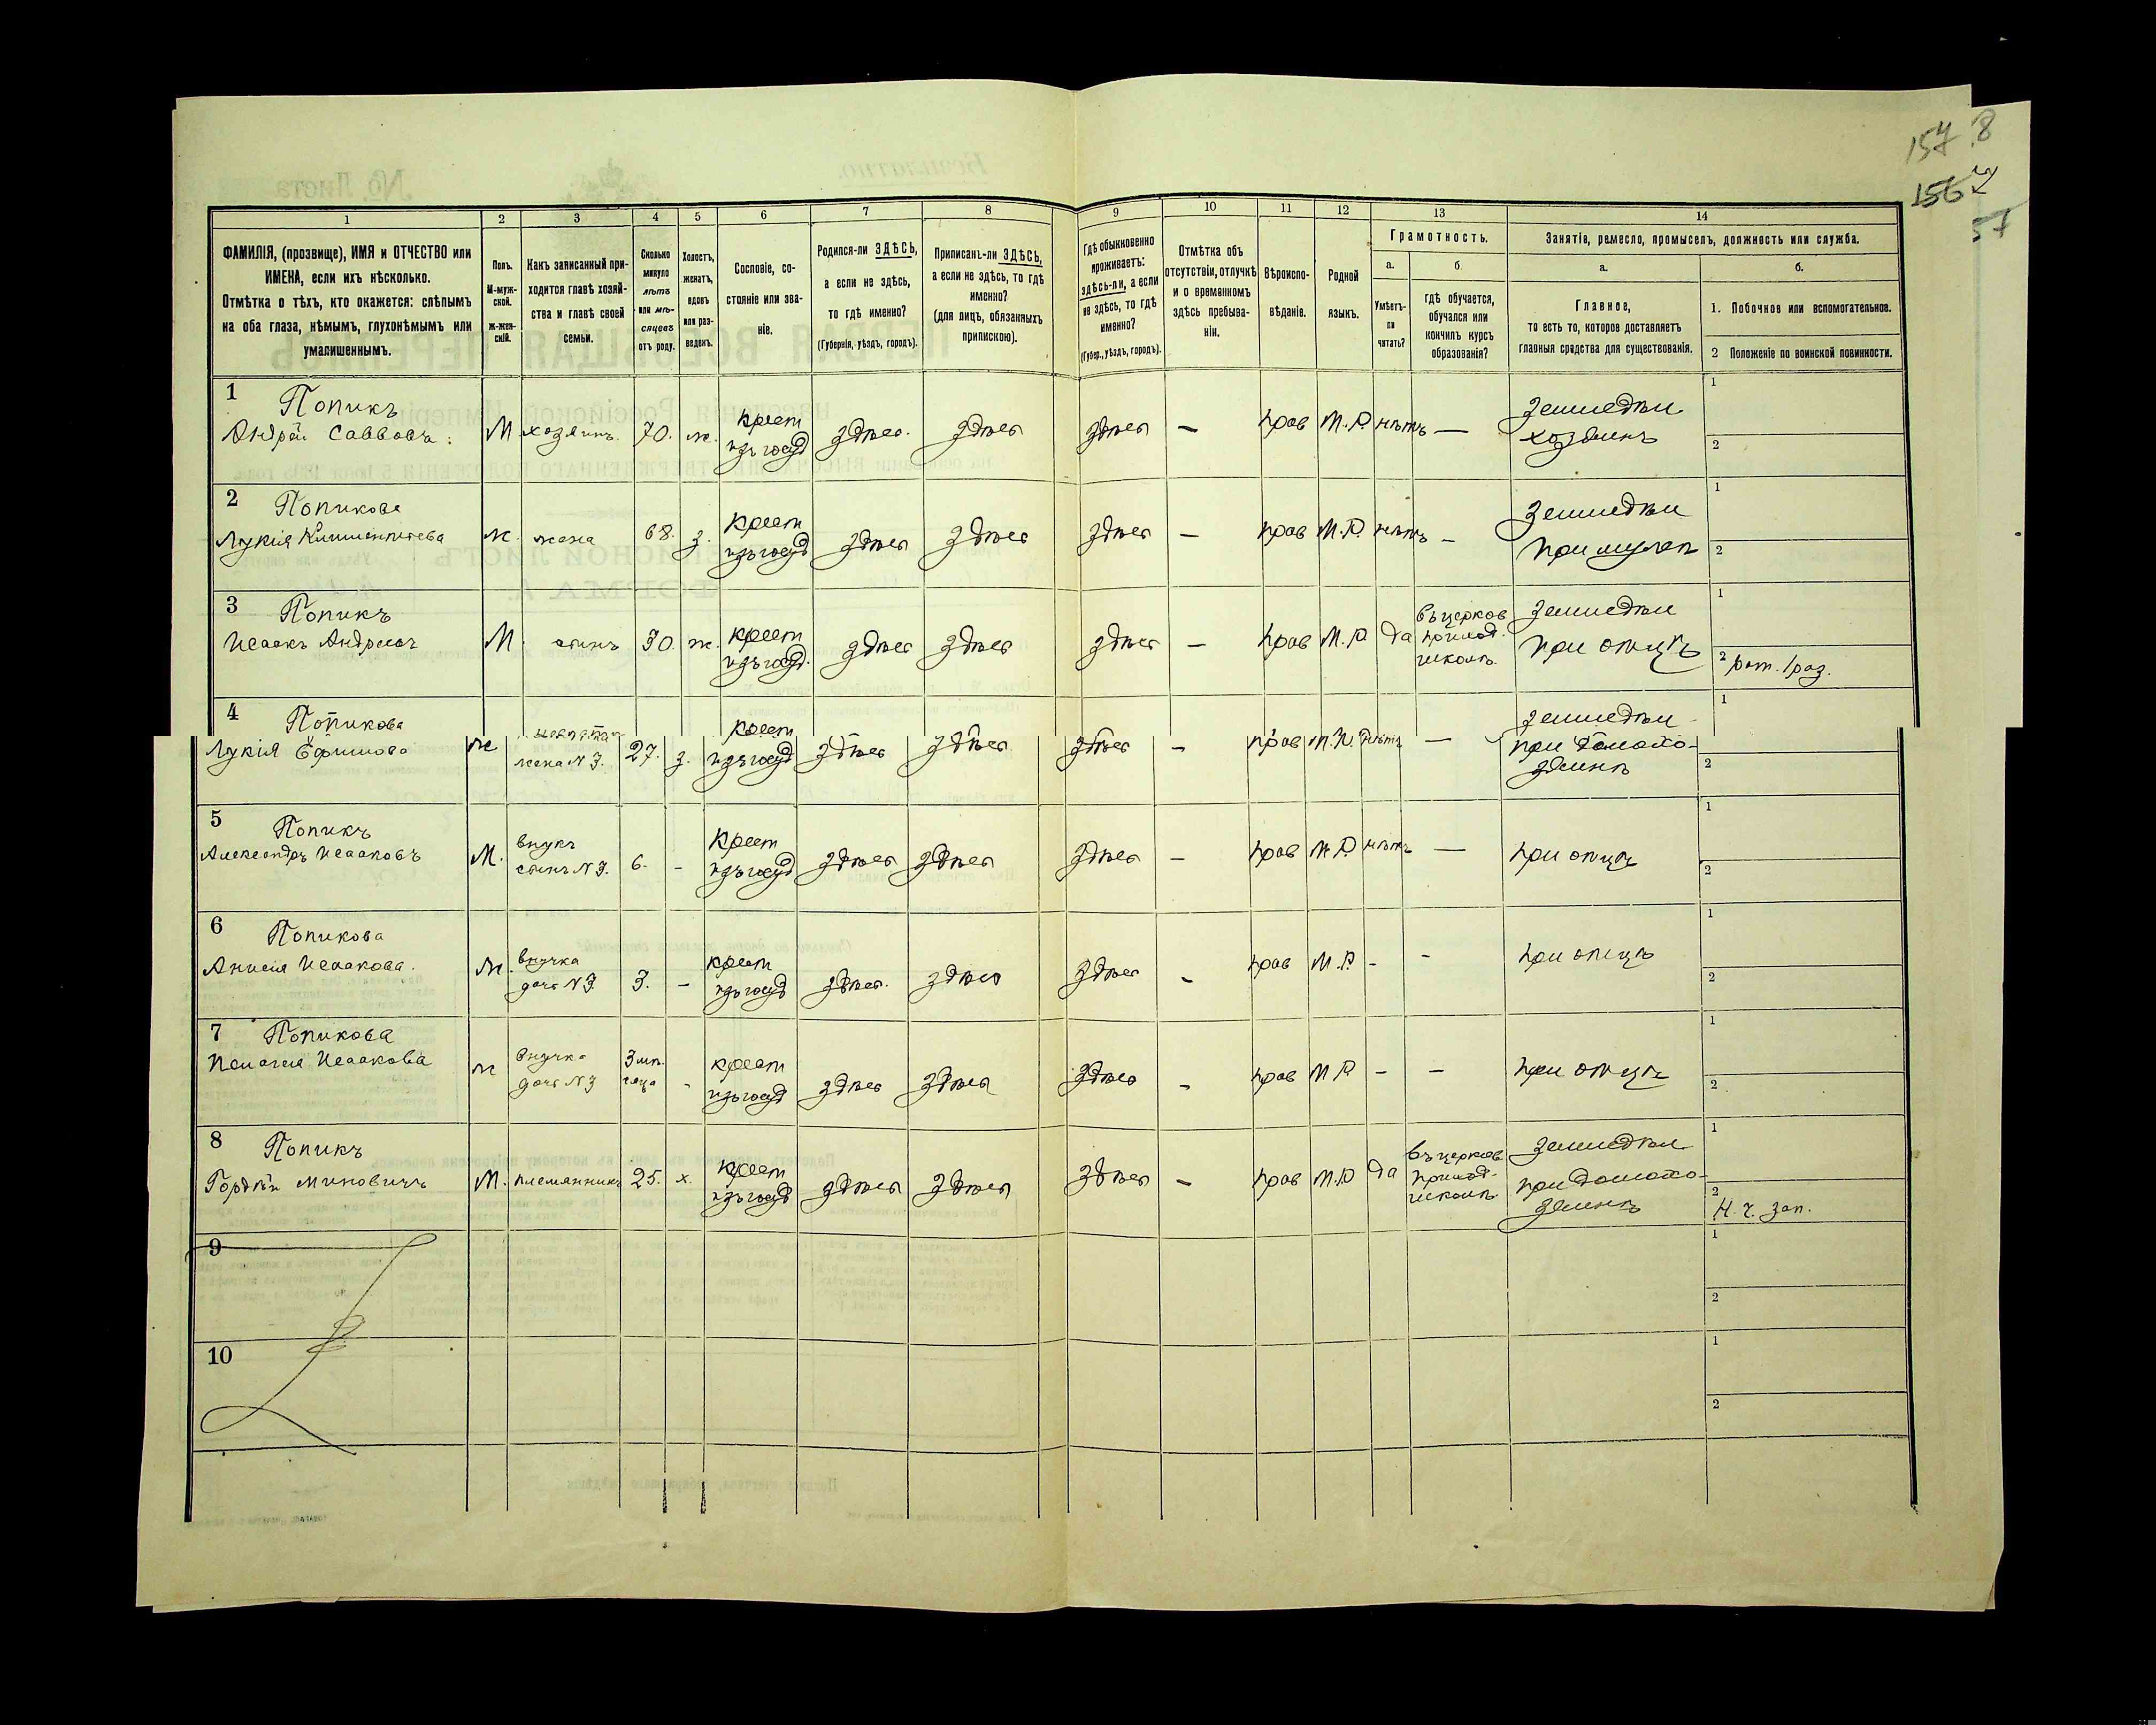 157 8
156
57
1 2 3 4 5 6 7 8 9 10 11 12 13 14
ФАМИЛІЯ, (прозвище), ИМЯ и ОТЧЕСТВО или
ИМЕНА, если ихъ нѣсколько.
Отмѣтка о тѣхъ, кто окажется: слѣпымъ
на оба глаза, нѣмымъ, глухонѣмымъ или
умалишеннымъ.
Полъ.
М-муж-
ской.
Ж-жен-
скій.
Какъ записанный при-
ходится главѣ хозяй-
ства и главѣ своей
семьи.
Сколько
минуло
лѣтъ
или мѣ-
сяцевъ
отъ роду.
Холостъ,
женатъ,
вдовъ
или раз-
веденъ.
Сословіе, со-
стояніе или зва-
ніе.
Родился-ли ЗДѢСЬ,
а если не здѣсь,
то гдѣ именно?
(Губернія, уѣздъ, городъ).
Приписанъ-ли ЗДѢСЬ,
а если не здѣсь, то гдѣ
именно?
(для лицъ, обязанныхъ
припискою).
Гдѣ обыкновенно
проживаетъ:
здѣсь-ли, а если
не здѣсь, то гдѣ
именно?
(Губер., уѣздъ, городъ).
Отмѣтка объ
отсутствіи, отлучкѣ
и о временномъ
здѣсь пребыва-
ніи.
Вѣроиспо-
вѣданіе.
Родной
языкъ.
Грамотность.
а.
Умѣетъ-
ли
читать?
б
гдѣ обучается,
обучался или
кончилъ курсъ
образованія?
Занятіе, ремесло, промыселъ, должность или служба.
а.
Главное,
то есть то, которое доставляетъ
главныя средства для существованія.
б.
1. Побочное или вспомогательное.
2 Положеніе по воинской повинности.
1 Попикъ крест земледѣл 1
Андрей Саввовъ М хозяинъ 70. ж. изъ госуд здѣсь здѣсь здѣсь — прав М.Р. нѣтъ — хозяинъ 2
2 Попикова крест земледѣл 1
Лукія ж. жена 68. з. изъ госуд здѣсь здѣсь здѣсь — прав М.Р. нѣтъ — при мужѣ 2
3 Попикъ крест въ церков земледѣл 1
Исаакъ Андреевъ М сынъ 30. ж. изъ госуд. здѣсь здѣсь здѣсь — прав М.Р. да приход. при отцѣ 2 рат. 1 раз.
школѣ
4 Попикова невѣстка крест земледѣл 1
Лукія Ефимова ж жена N 3. 27. з. изъ госуд здѣсь здѣсь здѣсь — прав М.Р. нѣтъ — при домохо- 2
зяинѣ
5 Попикъ внукъ крест 1
Александръ Исааковъ М. сынъ N 3. 6. - изъ госуд здѣсь здѣсь здѣсь — прав М.Р. нѣтъ — при отцѣ 2
6 Попикова внучка крест 1
Анисія Исаакова. ж. дочь N 3 3. - изъ госуд здѣсь. здѣсь здѣсь - прав М.Р. - - при отцѣ 2
7 Попикова внучка 3 мѣ- крест 1
Пелагея Исаакова ж дочь N 3 сяца - изъ госуд здѣсь здѣсь здѣсь - прав М Р - - при отцѣ 2
8 Попикъ крест въ церков земледѣл 1
Гордѣй Миновичъ М. племянникъ 25. х. изъ госуд здѣсь здѣсь здѣсь - прав М.Р да приход. при домохо- 2
школѣ зяинѣ Н. ч. зап.
9 1
2
10 1
2